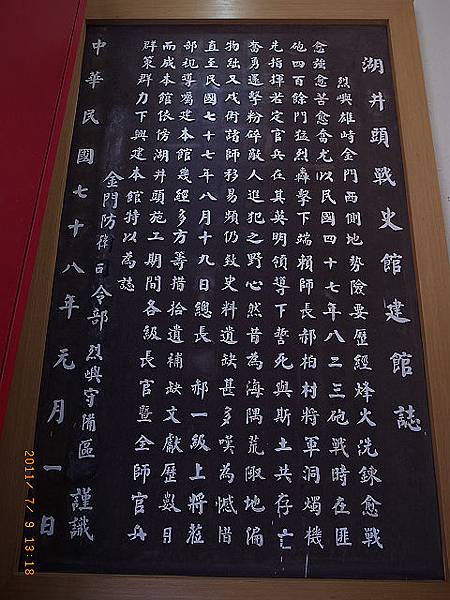 湖井頭戰史館建館誌
烈嶼雄峙金門西側地勢險要歷經烽火洗鍊愈戰
愈強愈苦愈奮尤以民國四十七年八二三砲戰時在匪
砲四百餘門猛烈轟擊下端賴師長郝柏村將軍洞燭機
先指揮若定官兵在其英明領導下誓死與斯土共存亡
奮勇還擊粉碎敵人進犯之野心然昔為海隅荒陬地偏
物絀又戍衛諸師移易頻仍致史料遺缺甚多嘆為憾惜
直至民國七十七年八月十九日總長 郝一級上將蒞
部視導囑建本館幾經多方籌措拾遺補缺文獻歷數月
而成本館依傍湖井頭施工期間各級長官暨全師官兵
群策群力下興建本館特以為誌
金門防衛司令部 烈嶼守備區 謹識
中華民國七十八年元月一日
2011/7/9 13:18